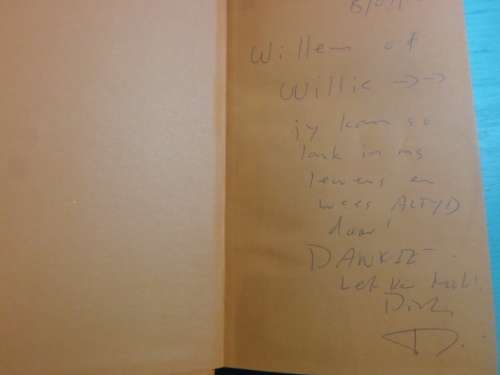 Willem of
Willie →→
jy kom so
lank in my
lewens en
wees ALTYD
daar!
DANKIE
Dirk
D.